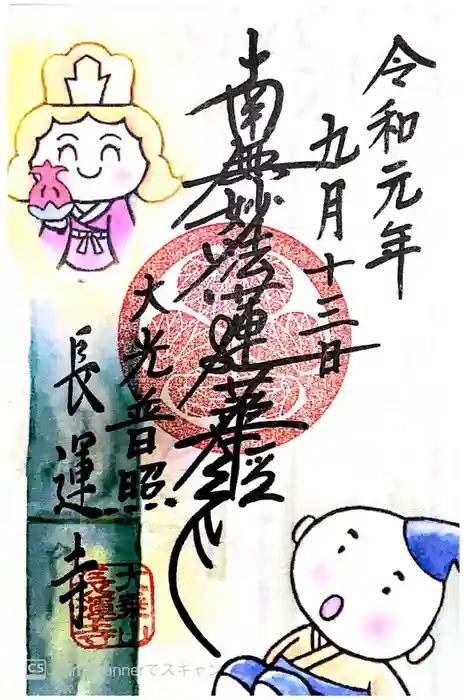 令和元年
九月十三日
南無妙法蓮華経
大光普照
長運寺
大乗山
長運寺
CS
でスキャン